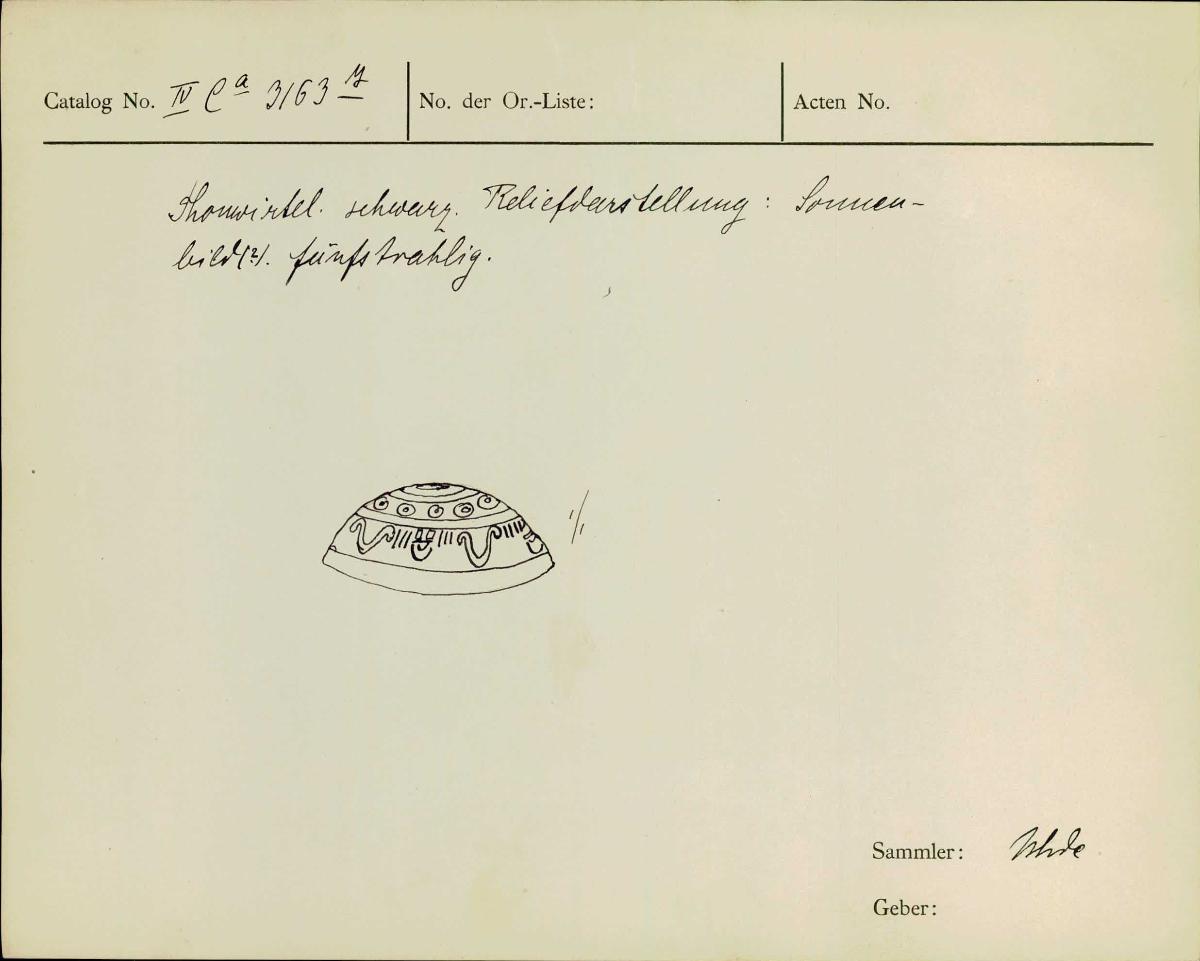 Catalog No. IV Ca 3163 y
No. der Or.-Liste:
Acten No.
Thonwirtel. schwarz. Reliefdarstellung: Sonnen-
bild(?). fünfstrahlig.
1/1
Sammler: Uhde
Geber: